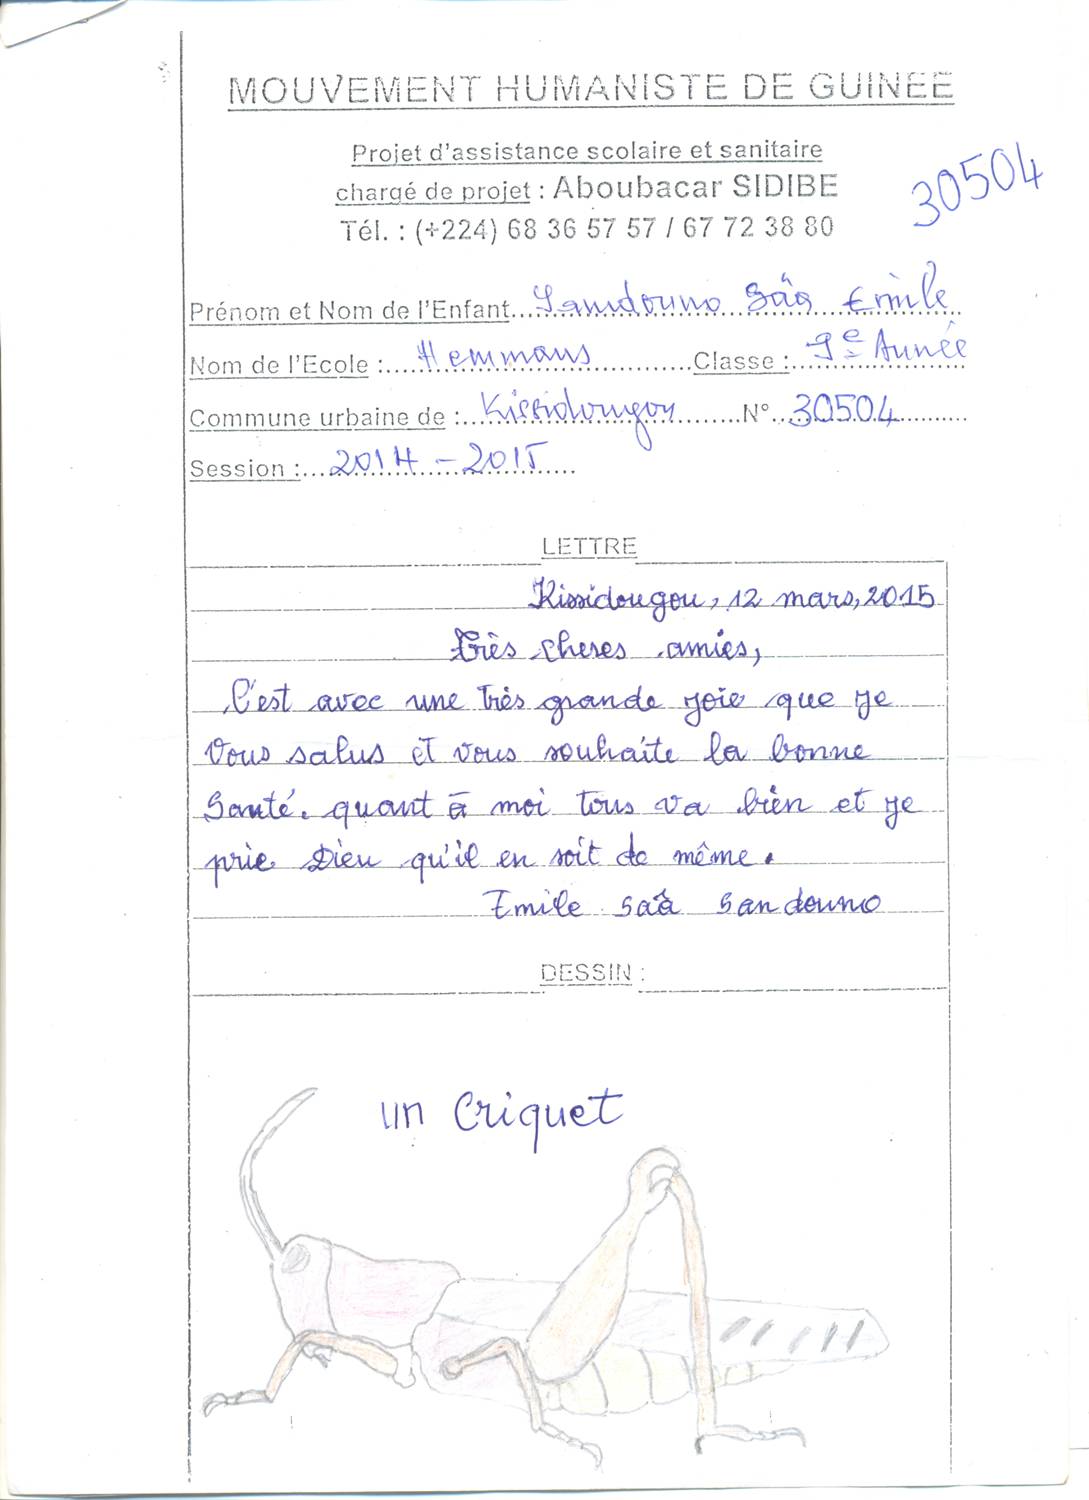 MOUVEMENT HUMANISTE DE GUINEE
Projet d'assistance scolaire et sanitaire
chargé de projet : Aboubacar SIDIBE
Tél. : (+224) 68 36 57 57 / 67 72 38 80
30504
Prénom et Nom de l'Enfant...Sandouno Saâ Emile
Nom de l'Ecole :....Hemmans..........Classe :..9e Année
Commune urbaine de :..Kissidougou.......N°..30504.........
Session :...2014 - 2015...
LETTRE
Kissidougou, 12 mars, 2015
Très cheres amies,
C'est avec une très grande joie que je
Vous salus et vous souhaite la bonne
Santé. quant à moi tous va bien et je
prie Dieu qu'il en soit de même.
Emile Saâ Sandouno
DESSIN :
un Criquet